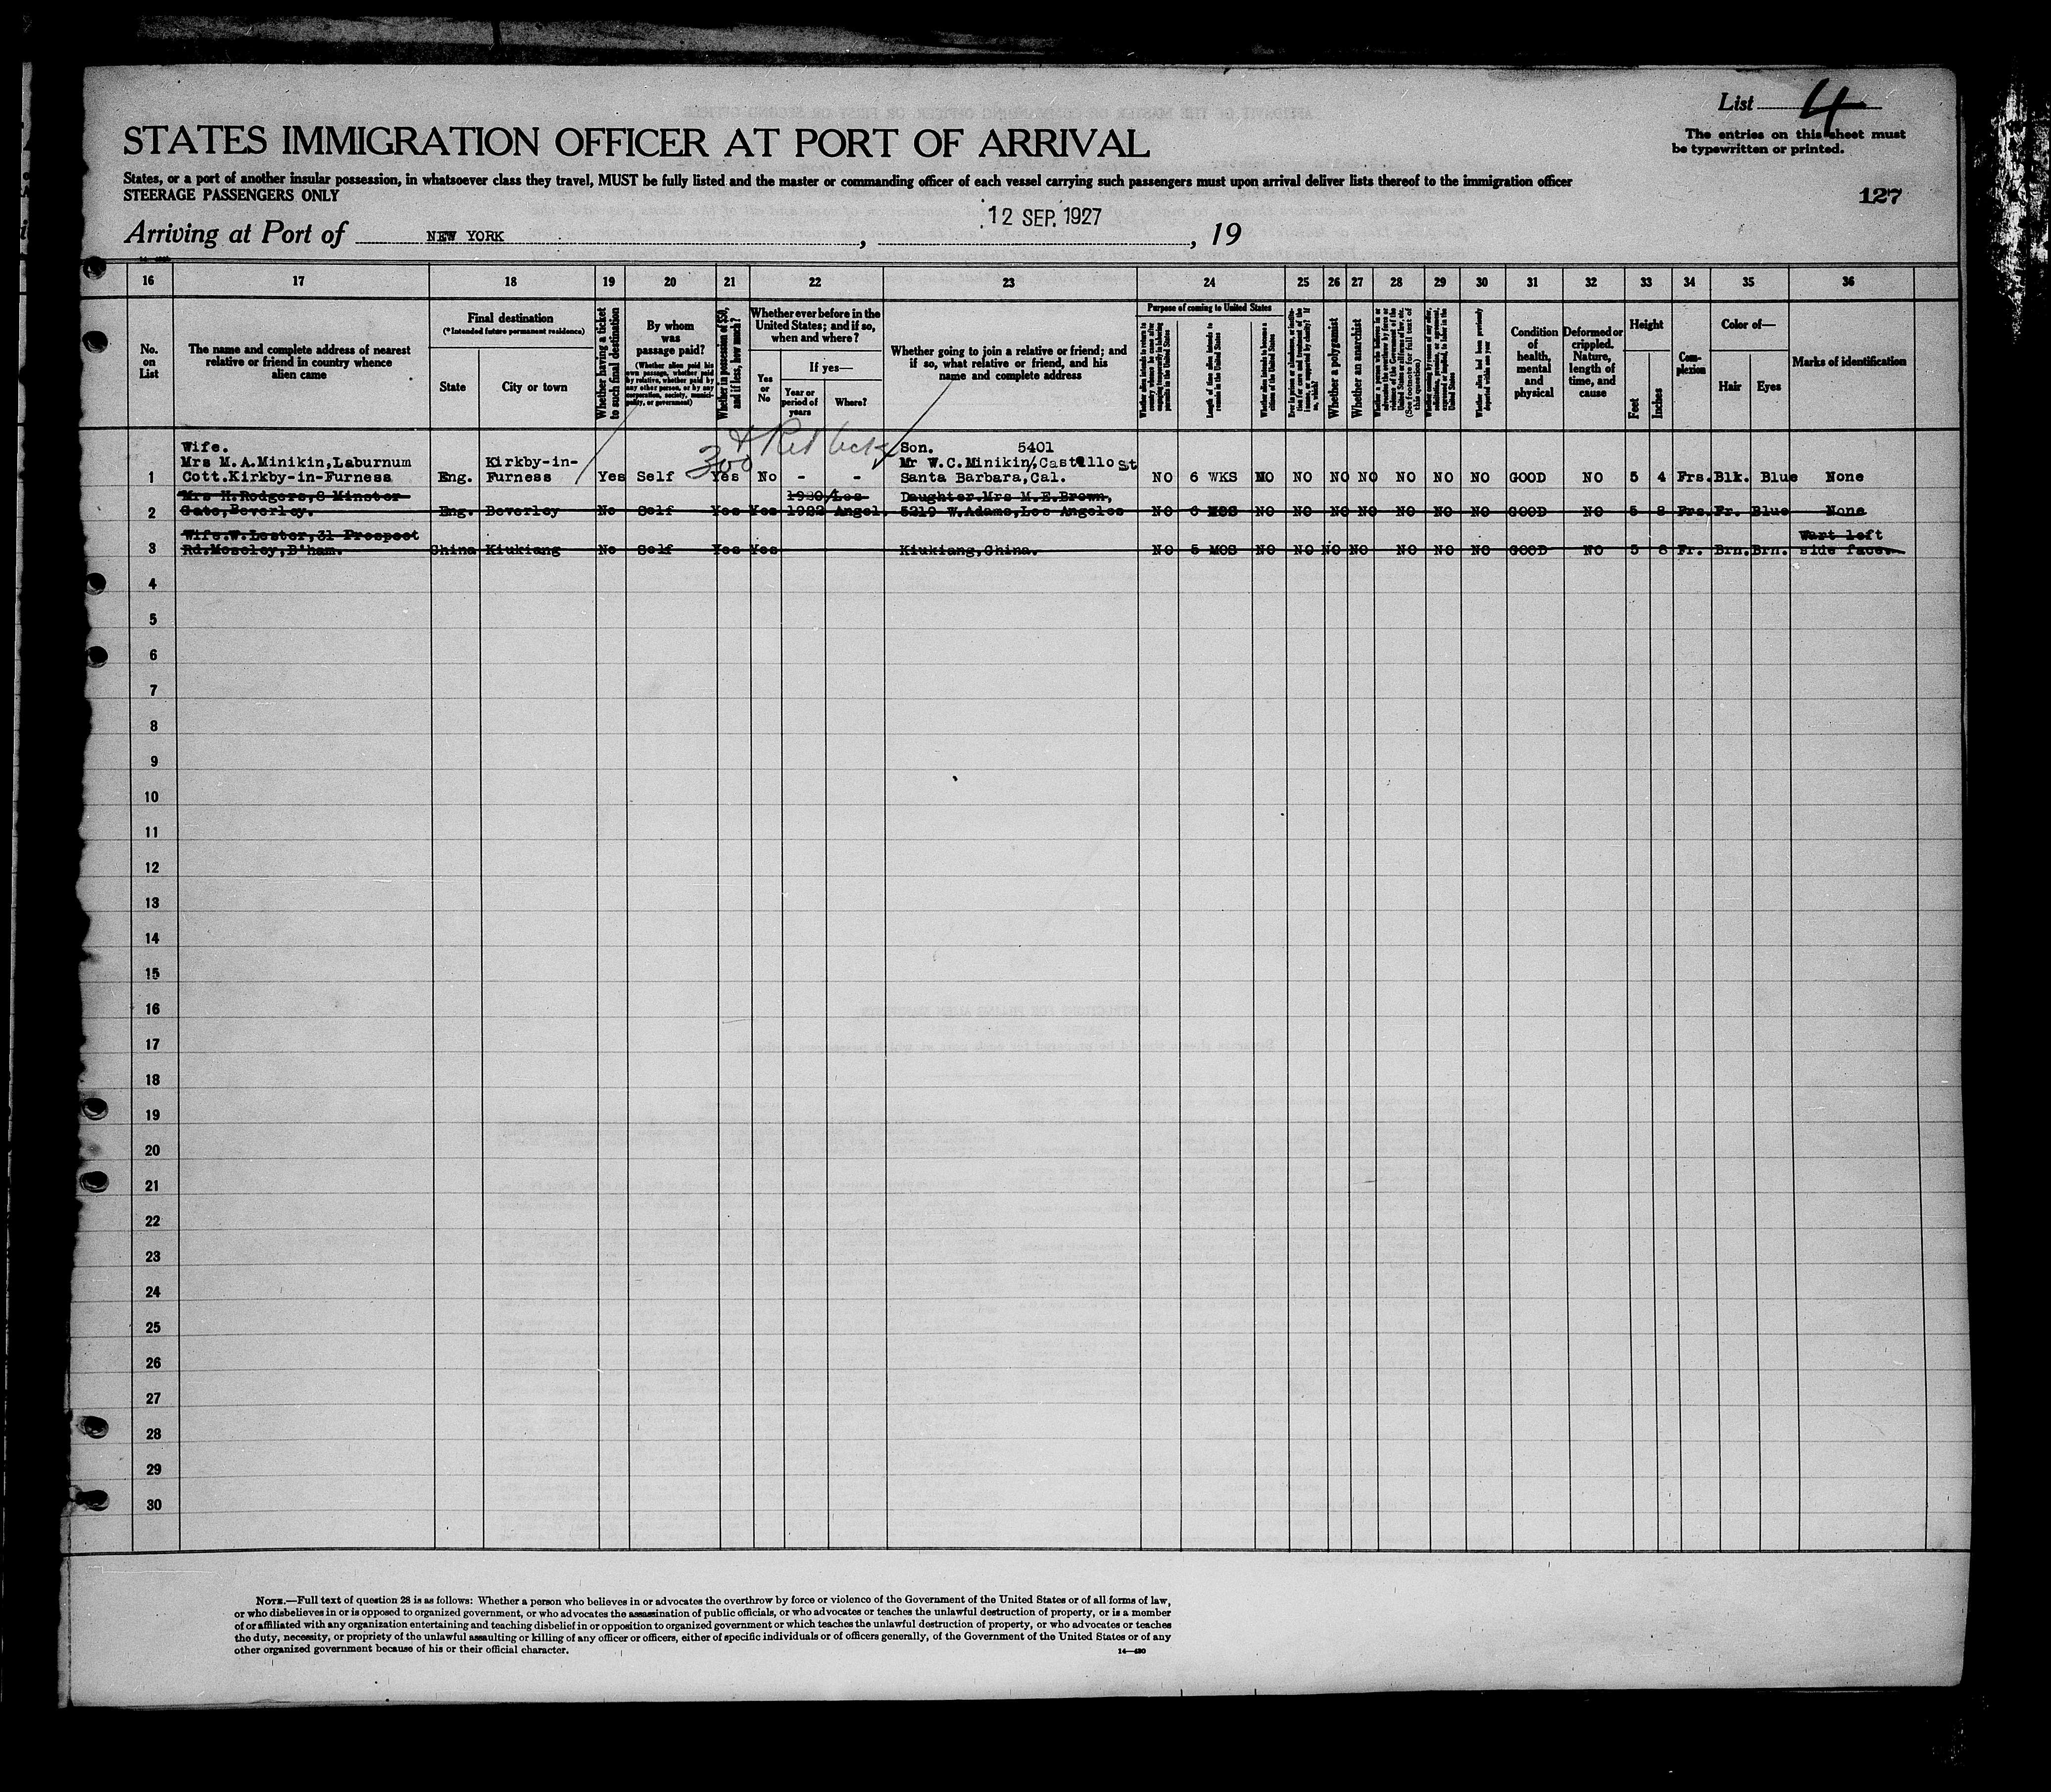 List 4
The entries on this sheet must
be typewritten or printed.
STATES IMMIGRATION OFFICER AT PORT OF ARRIVAL
States, or a port of another insular possession, in whatsoever class they travel, MUST be fully listed and the master or commanding officer of each vessel carrying such passengers must upon arrival deliver lists thereof to the immigration officer
STEERAGE PASSENGERS ONLY
127
Arriving at Port of NEW YORK, 12 SEP. 1927, 19
16 17 18 19 20 21 22 23 24 25 26 27 28 29 30 31 32 33 34 35 36
No.
on
List
The name and complete address of nearest
relative or friend in country whence
alien came
Final destination
(*Intended future permanent residence)
State
City or town
Whether having a ticket
to such final destination
By whom
was
passage paid?
(Whether alien paid his
own passage, whether paid
by relative, whether paid by
any other person, or by any
corporation, society, munici-
pality, or government)
Whether in possession of $50,
and if less, how much?
Whether ever before in the
United States; and if so,
when and where?
Yes
or
No
If yes—
Year or
period of
years
Where?
Whether going to join a relative or friend; and
if so, what relative or friend, and his
name and complete address
Purpose of coming to United States
Length of time alien intends to
remain in the United States
Whether alien intends to become a
citizen of the United States
Whether a polygamist
Whether an anarchist
(See footnote for full text of
this question)
Whether alien had been previously
deported within one year
Condition
of
health,
mental
and
physical
Deformed or
crippled.
Nature,
length of
time, and
cause
Height
Feet
Inches
Com-
plexion
Color of—
Hair
Eyes
Marks of identification
300
Wife. Son. 5401
Mrs M.A.Minikin,Laburnum Kirkby-in- Mr W.C.Minikin, Castello St
1 Cott.Kirkby-in-Furness Eng. Furness Yes Self Yes No - - Santa Barbara,Cal. NO 6 WKS NO NO NO NO NO NO NO GOOD NO 5 4 Frs. Blk. Blue None
Mrs H.Rodgers,8 Minster 1920/Los Daughter.Mrs M.E.Brown,
2 Gate,Beverley. Eng. Beverley No Self Yes Yes 1922 Angel. 5219 W.Adams,Los Angeles NO 6 MOS NO NO NO NO NO NO NO GOOD NO 5 8 Frs. Fr. Blue None
Wife.W.Lester,31 Prospect Wart left
3 Rd.Moseley,B'ham. China Kiukiang No Self Yes Yes Kiukiang,China. NO 5 MOS NO NO NO NO NO NO NO GOOD NO 5 8 Fr. Brn. Brn. side face
4
5
6
7
8
9
10
11
12
13
14
15
16
17
18
19
20
21
22
23
24
25
26
27
28
29
30
NOTE.—Full text of question 28 is as follows: Whether a person who believes in or advocates the overthrow by force or violence of the Government of the United States or of all forms of law,
or who disbelieves in or is opposed to organized government, or who advocates the assassination of public officials, or who advocates or teaches the unlawful destruction of property, or is a member
of or affiliated with any organization entertaining and teaching disbelief in or opposition to organized government or which teaches the unlawful destruction of property, or who advocates or teaches
the duty, necessity, or propriety of the unlawful assaulting or killing of any officer or officers, either of specific individuals or of officers generally, of the Government of the United States or of any
other organized government because of his or their official character.
14—430